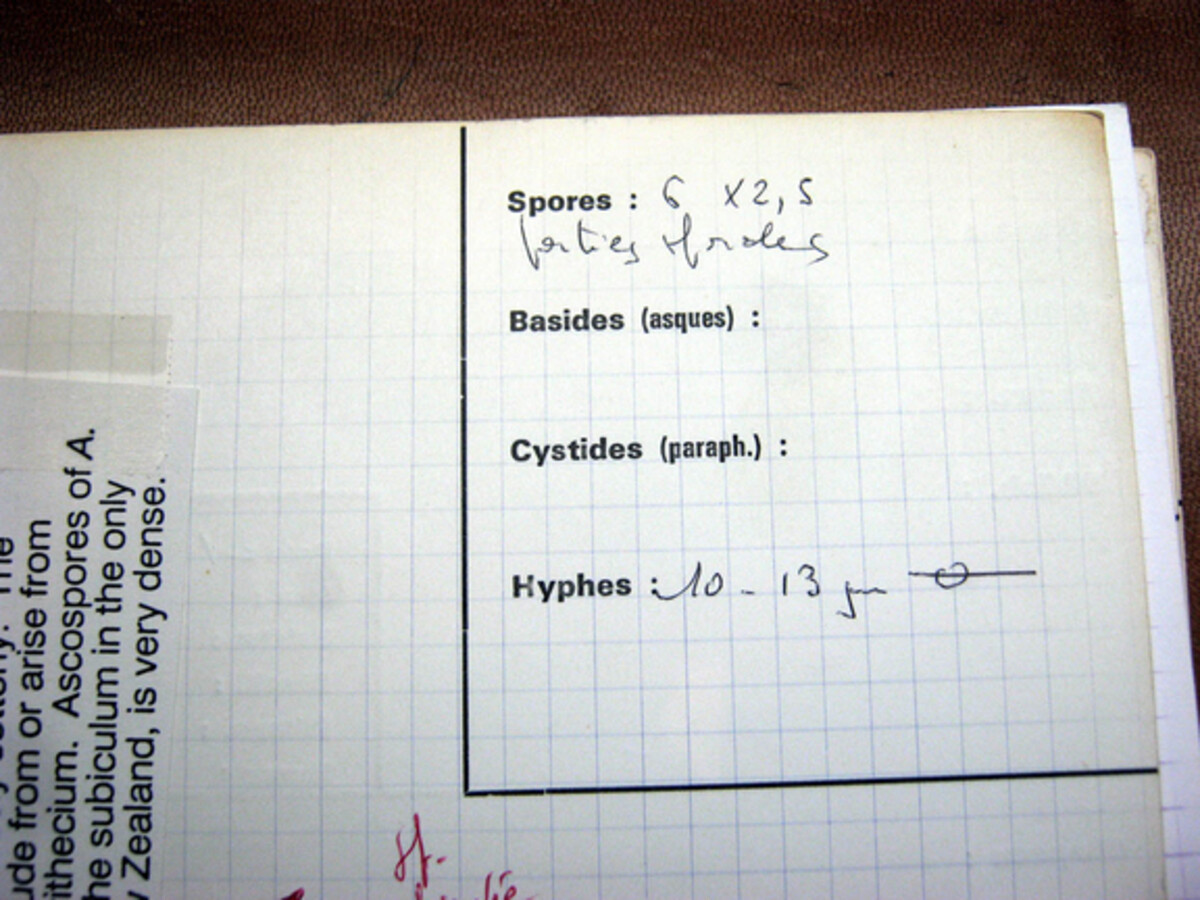 Spores : 6 x 2,5
Basides (asques) :
Cystides (paraph.) :
Hyphes : 10 - 13 µm
ude from or arise from
ithecium. Ascospores of A.
he subiculum in the only
Zealand, is very dense.